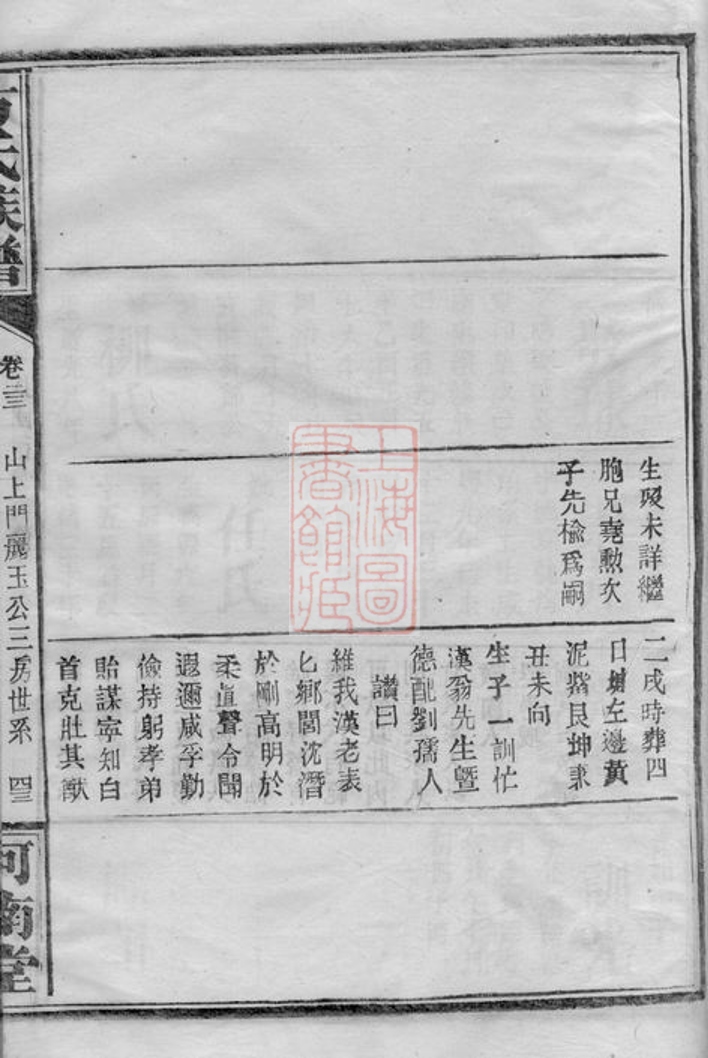 生殁未詳繼
胞兄堯勲次
子先檢爲嗣
二戌時葬四
日塘左邊黄
泥𭶚艮坤兼
丑未向
生子一訓忙
漢翁先生曁
德配劉孺人
讚曰
維我漢老表
匕鄉閭沈潛
於剛高明於
柔眞聲令聞
遐邇咸孚勤
儉持躬孝弟
貽謀寧知白
首克壯其猷
氏族譜
卷三三
山上門麗玉公三房世系
四三
河南堂
上海圖書館藏